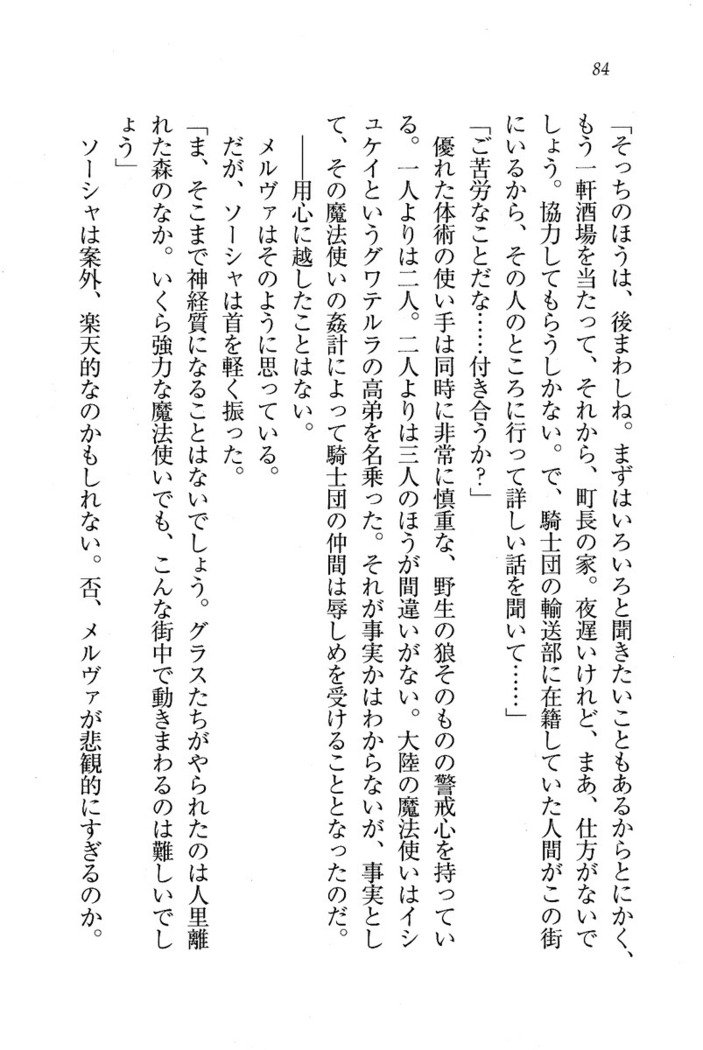 84
「そっちのほうは、後まわしね。まずはいろいろと聞きたいこともあるからとにかく、
もう一軒酒場を当たって、それから、町長の家。夜遅いけれど、まあ、仕方がないで
しょう。協力してもらうしかない。で、騎士団の輸送部に在籍していた人間がこの街
にいるから、その人のところに行って詳しい話を聞いて……」
「ご苦労なことだな……付き合うか？」
優れた体術の使い手は同時に非常に慎重な、野生の狼そのものの警戒心を持ってい
る。一人よりは二人。二人よりは三人のほうが間違いがない。大陸の魔法使いはイシ
ュケイというグワテルラの高弟を名乗った。それが事実かはわからないが、事実とし
て、その魔法使いの姦計によって騎士団の仲間は辱しめを受けることとなったのだ。
――用心に越したことはない。
メルヴァはそのように思っている。
だが、ソーシャは首を軽く振った。
「ま、そこまで神経質になることはないでしょう。グラスたちがやられたのは人里離
れた森のなか。いくら強力な魔法使いでも、こんな街中で動きまわるのは難しいでし
ょう」
ソーシャは案外、楽天的なのかもしれない。否、メルヴァが悲観的にすぎるのか。